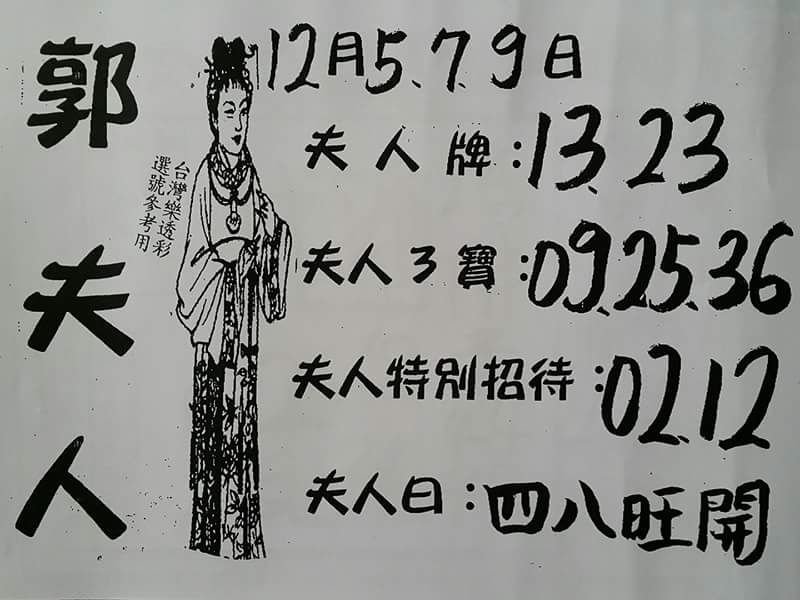 郭夫人
台灣樂透彩
選號參考用
12月5.7.9日
夫人牌:13.23
夫人3寶:09.25.36
夫人特別招待:02.12
夫人曰:四八旺開